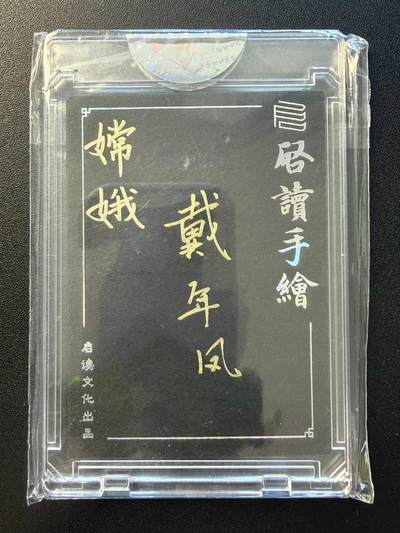 啓讀手繪
戴年凤
嫦娥
启读文化出品